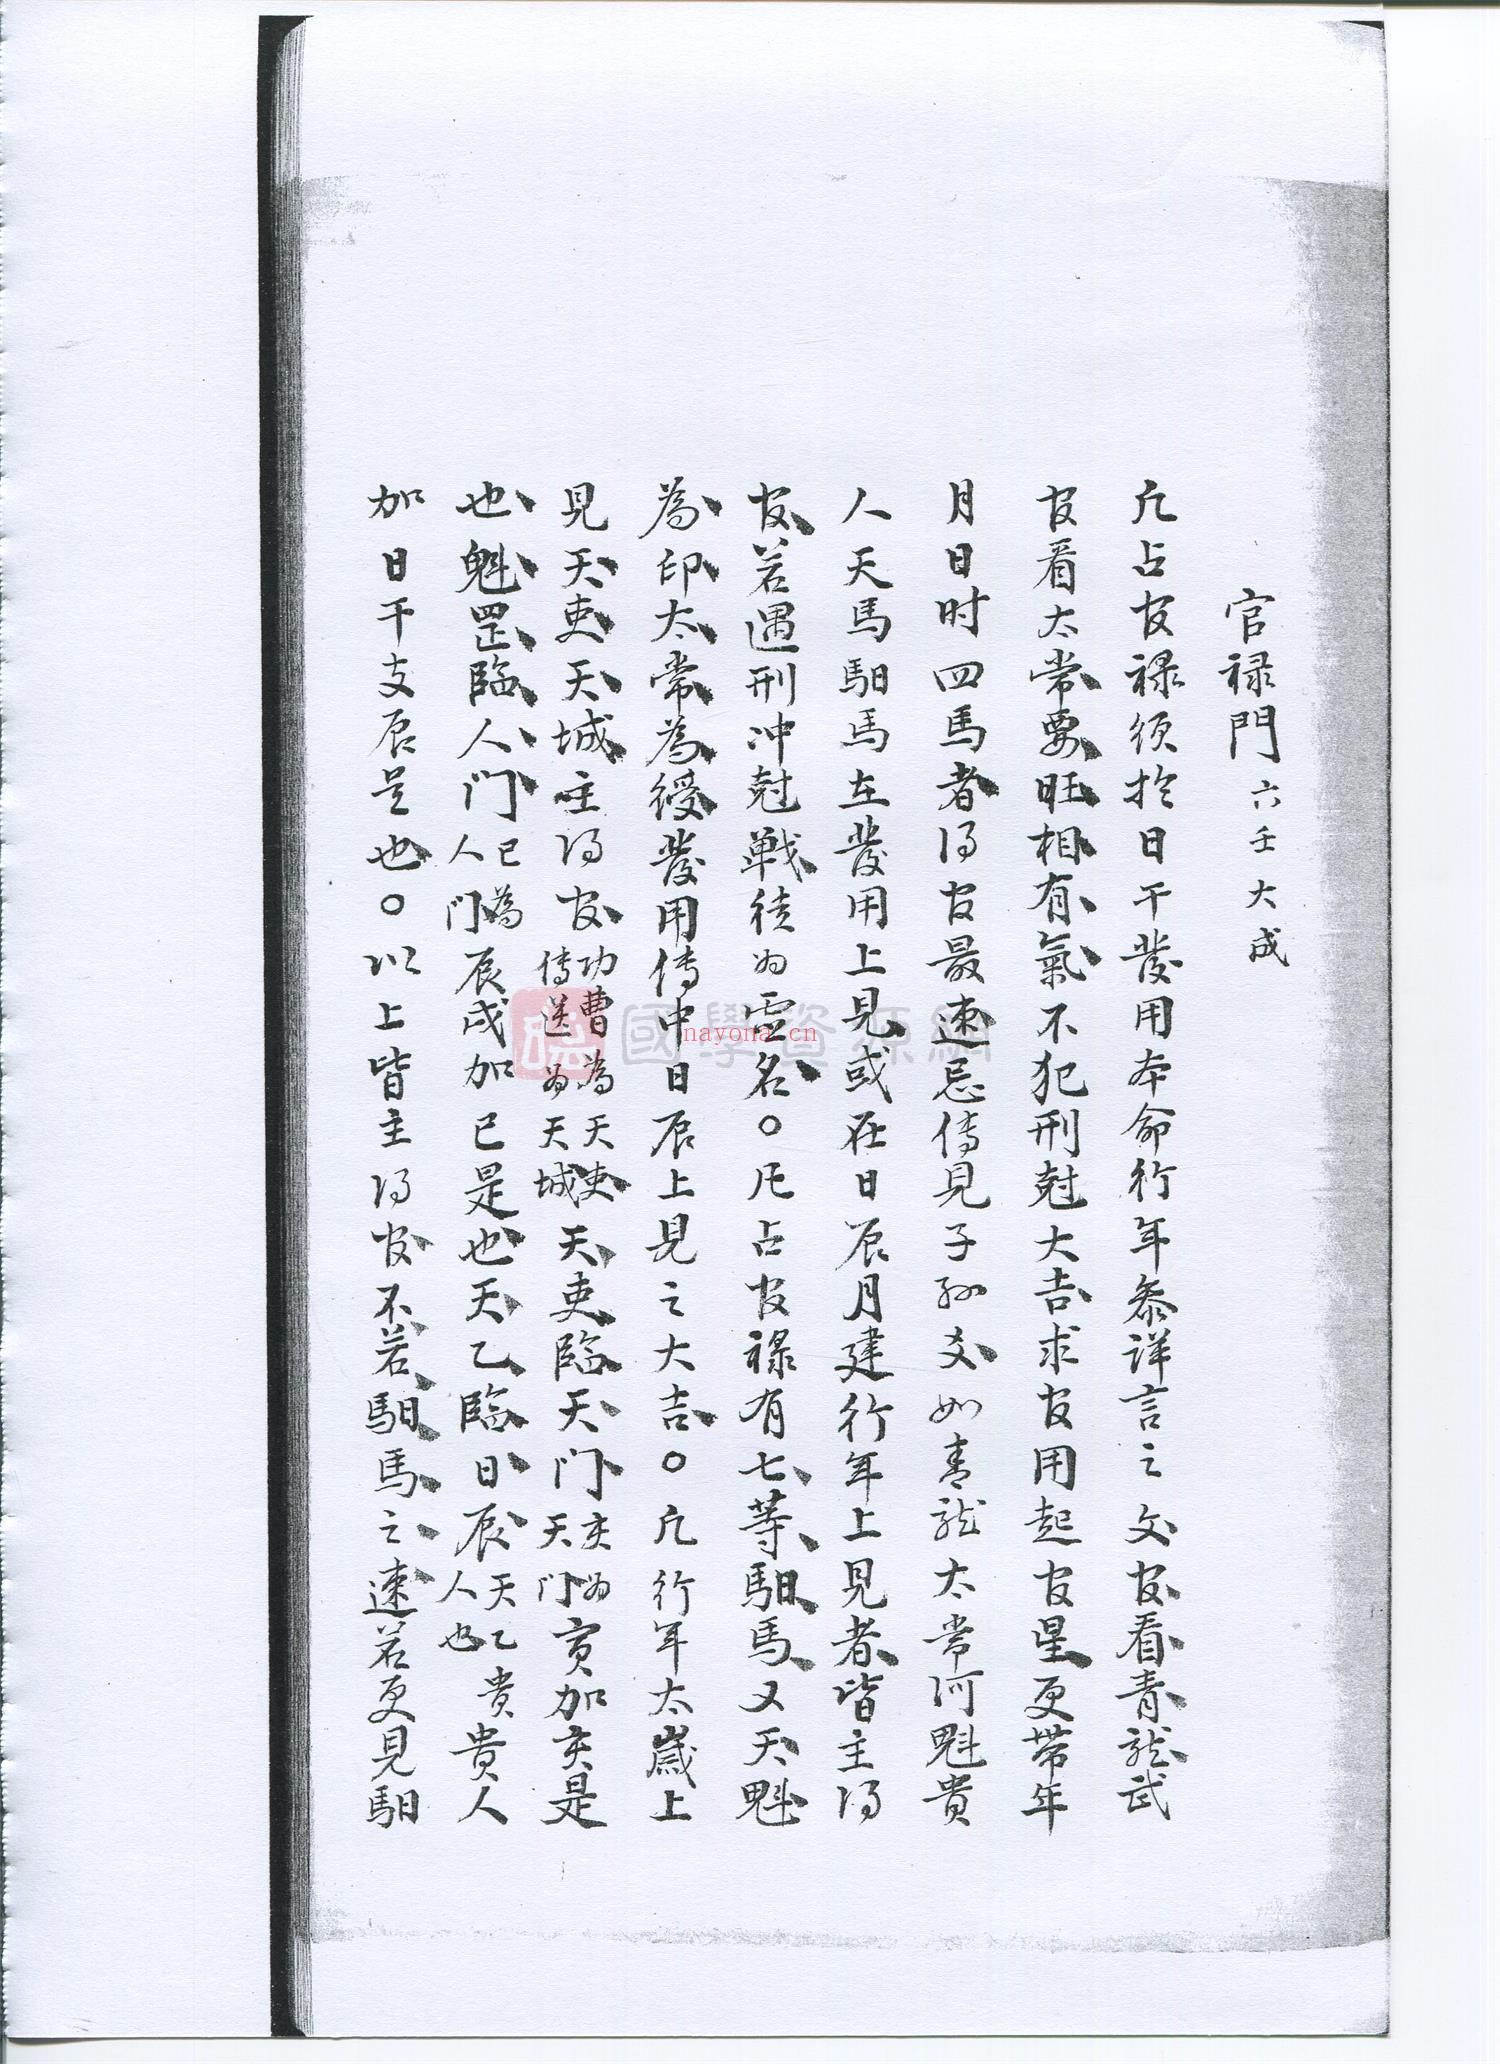 官禄門 六壬大成
凡占官禄须於日干發用本命行年叅详言之文官看青龙武
官看太常要旺相有氣不犯刑尅大吉求官用起官星更带年
月日时四馬者得官最速忌傳見子孙爻如青龙太常河魁貴
人天馬馹馬在發用上見或在日辰月建行年上見者皆主得
官若遇刑冲尅戰徒为虚名○凡占官禄有七等馹馬又天魁
為印太常為綬發用傳中日辰上見之大吉○凡行年太歲上
見天吏天城主得官功曹為天吏傳送为天城天吏臨天门亥为天门寅加亥是
也魁罡臨人门巳為人门辰戌加巳是也天乙臨日辰天乙貴人也貴人
加日干支辰是也○以上皆主得官不若馹馬之速若更見馹
國學資源網
nayona.cn